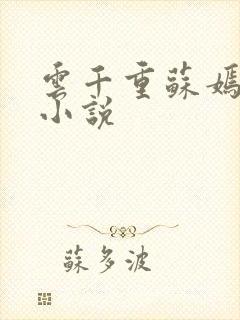 雲千重蘇嫣
小說
蘇多波